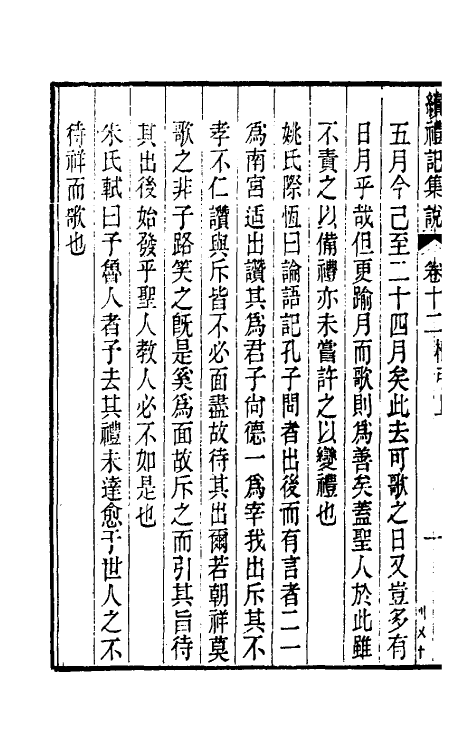 五月今己至二十四月矣此去可歌之日又豈多有
日月乎哉但更踰月而歌則為善矣蓋聖人於此雖
不責之以備禮亦未嘗許之以變禮也
姚氏際恆曰論語記孔子問者出後而有言者二一
為南宮适出讚其為君子尙德一為宰我出斥其不
孝不仁讚與斥皆不必面盡故待其出爾若朝祥莫
歌之非子路笑之旣是奚為面故斥之而引其旨待
其出後始發乎聖人教人必不如是也
朱氏軾曰子魯人者予去其禮未達愈于世人之不
待祥而歌也
續禮記集說 卷十二檀弓上